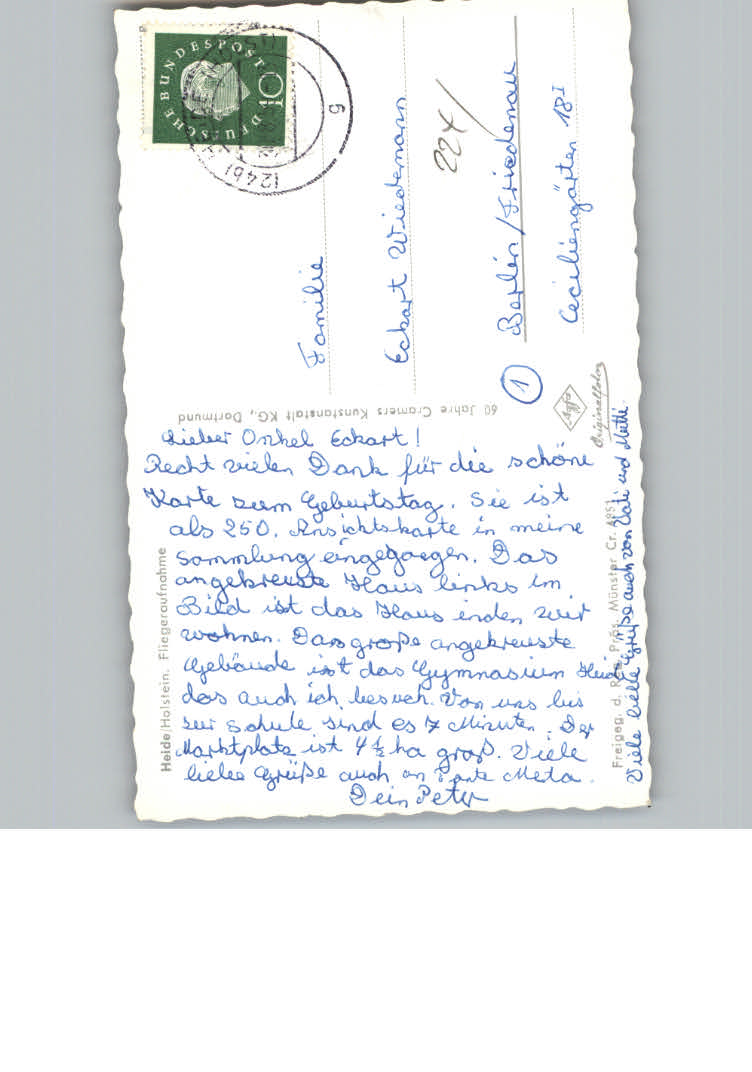 Lieber Onkel Eckart!
Recht vielen Dank für die schöne
Karte zum Geburtstag. Sie ist
als 250. Ansichtskarte in meine
Sammlung eingegangen. Das
angekreuste Haus links im
Bild ist das Haus inden wir
wohnen. Das große angekreuste
Gebäude ist das Gymnasium Heide
das auch ich besuch. Von uns bis
zur Schule sind es 7 Minuten. Der
Marktplatz ist 4½ ha groß. Viele
liebe Grüße auch an Tante Meta.
Dein Peter
Viele liebe Grüße auch von Vati und Mutti.
Familie
Eckart Wiedemann
22x/
① Berlin/Friedenau
Ceciliengärten 18I
DEUTSCHE BUNDESPOST
10
(24b)
g
60 Jahre Cramers Kunstanstalt KG., Dortmund
Agfa
Originalfoto
Heide/Holstein. Fliegeraufnahme
Freigeg. d. Reg. Präs. Münster Cr.